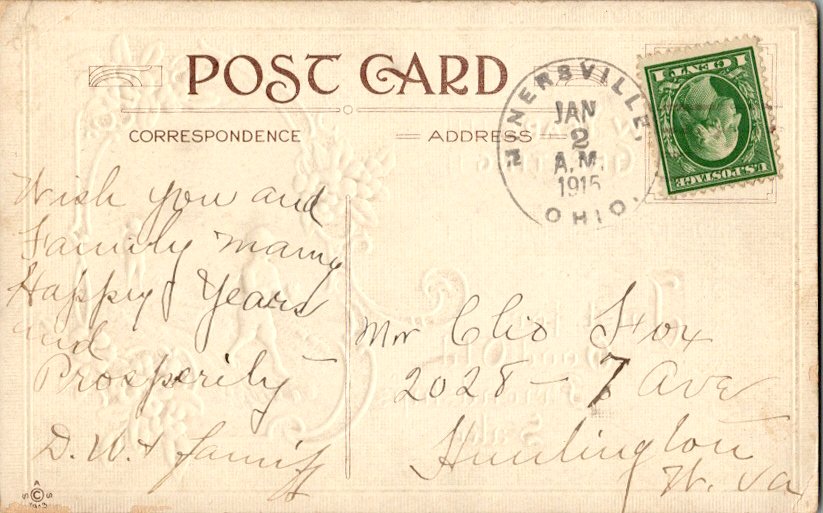 POST CARD
CORRESPONDENCE
ADDRESS
MINERSVILLE,
JAN
2
A.M.
1915
OHIO.
1 CENT 1
U.S. POSTAGE
Wish you and
Family many
Happy Years
and
Prosperity —
D. W. & family
Mr Clio Fox
2028 - 7 Ave
Huntington
W. Va
A
S © S